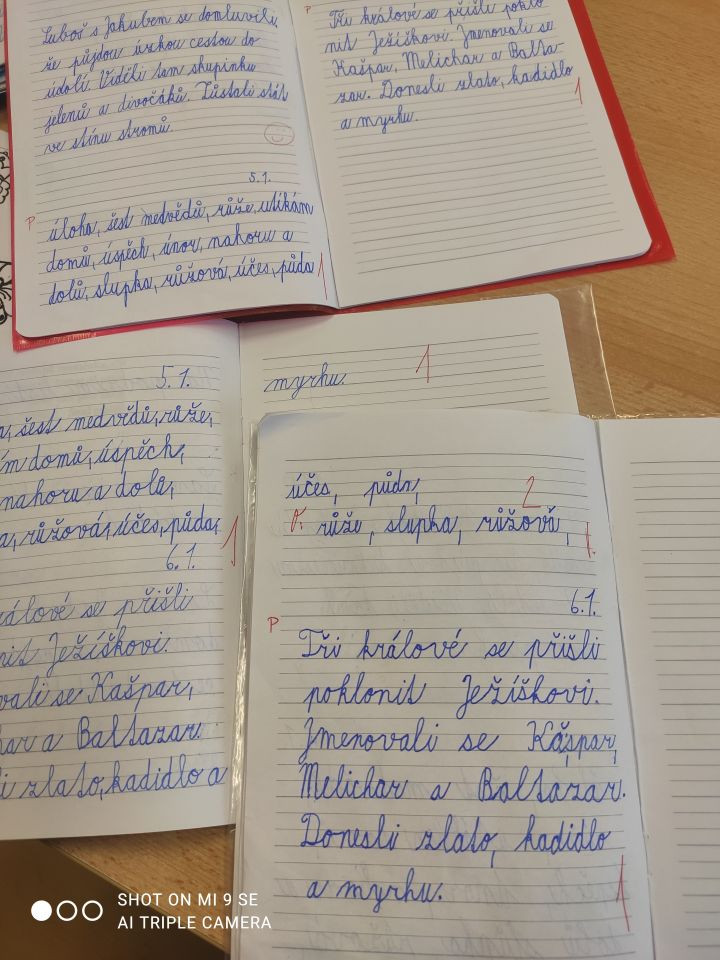 Luboš s Jakubem se domluvili,
že půjdou úzkou cestou do
údolí. Viděli tam skupinku
jelenů a divočáků. Zůstali stát
ve stínu stromů.
5.1.
P
úloha, šest medvědů, růže, utíkám
domů, úspěch, únor, nahoru a
dolů, slupka, růžová, účes, půda
1
P
Tři králové se přišli poklo
nit Ježíškovi. Jmenovali se
Kašpar, Melichar a Balta-
zar. Donesli zlato, kadidlo
a myrhu.
1
5.1.
šest medvědů, růže,
domů, úspěch,
nahoru a dolů,
růžová, účes, půda,
1
6.1.
králové se přišli
Ježíškovi.
se Kašpar,
a Baltazar.
zlato, kadidlo a
myrhu.
1
účes, půda,
2
O. růže, slupka, růžová,
1.
6.1.
P
Tři králové se přišli
poklonit Ježíškovi.
Jmenovali se Kašpar,
Melichar a Baltazar.
Donesli zlato, kadidlo
a myrhu.
1
SHOT ON MI 9 SE
AI TRIPLE CAMERA